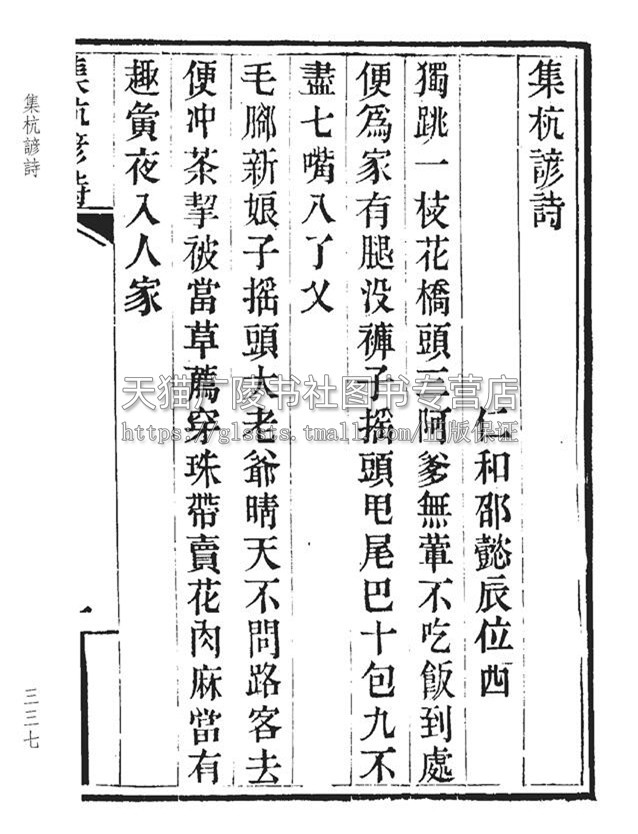 集杭諺詩
仁和邵懿辰位西
獨跳一枝花橋頭三阿爹無葷不吃飯到處
便爲家有腿没褲子摇頭甩尾巴十包九不
盡七嘴八了叉
毛腳新娘子摇頭大老爺晴天不問路客去
便冲茶挈被當草薦穿珠帶賣花肉麻當有
趣黄夜入人家
集杭諺詩
集杭諺詩
三三七
天猫广陵书社图书专营店
https://glssts.tmall.com/正版保证